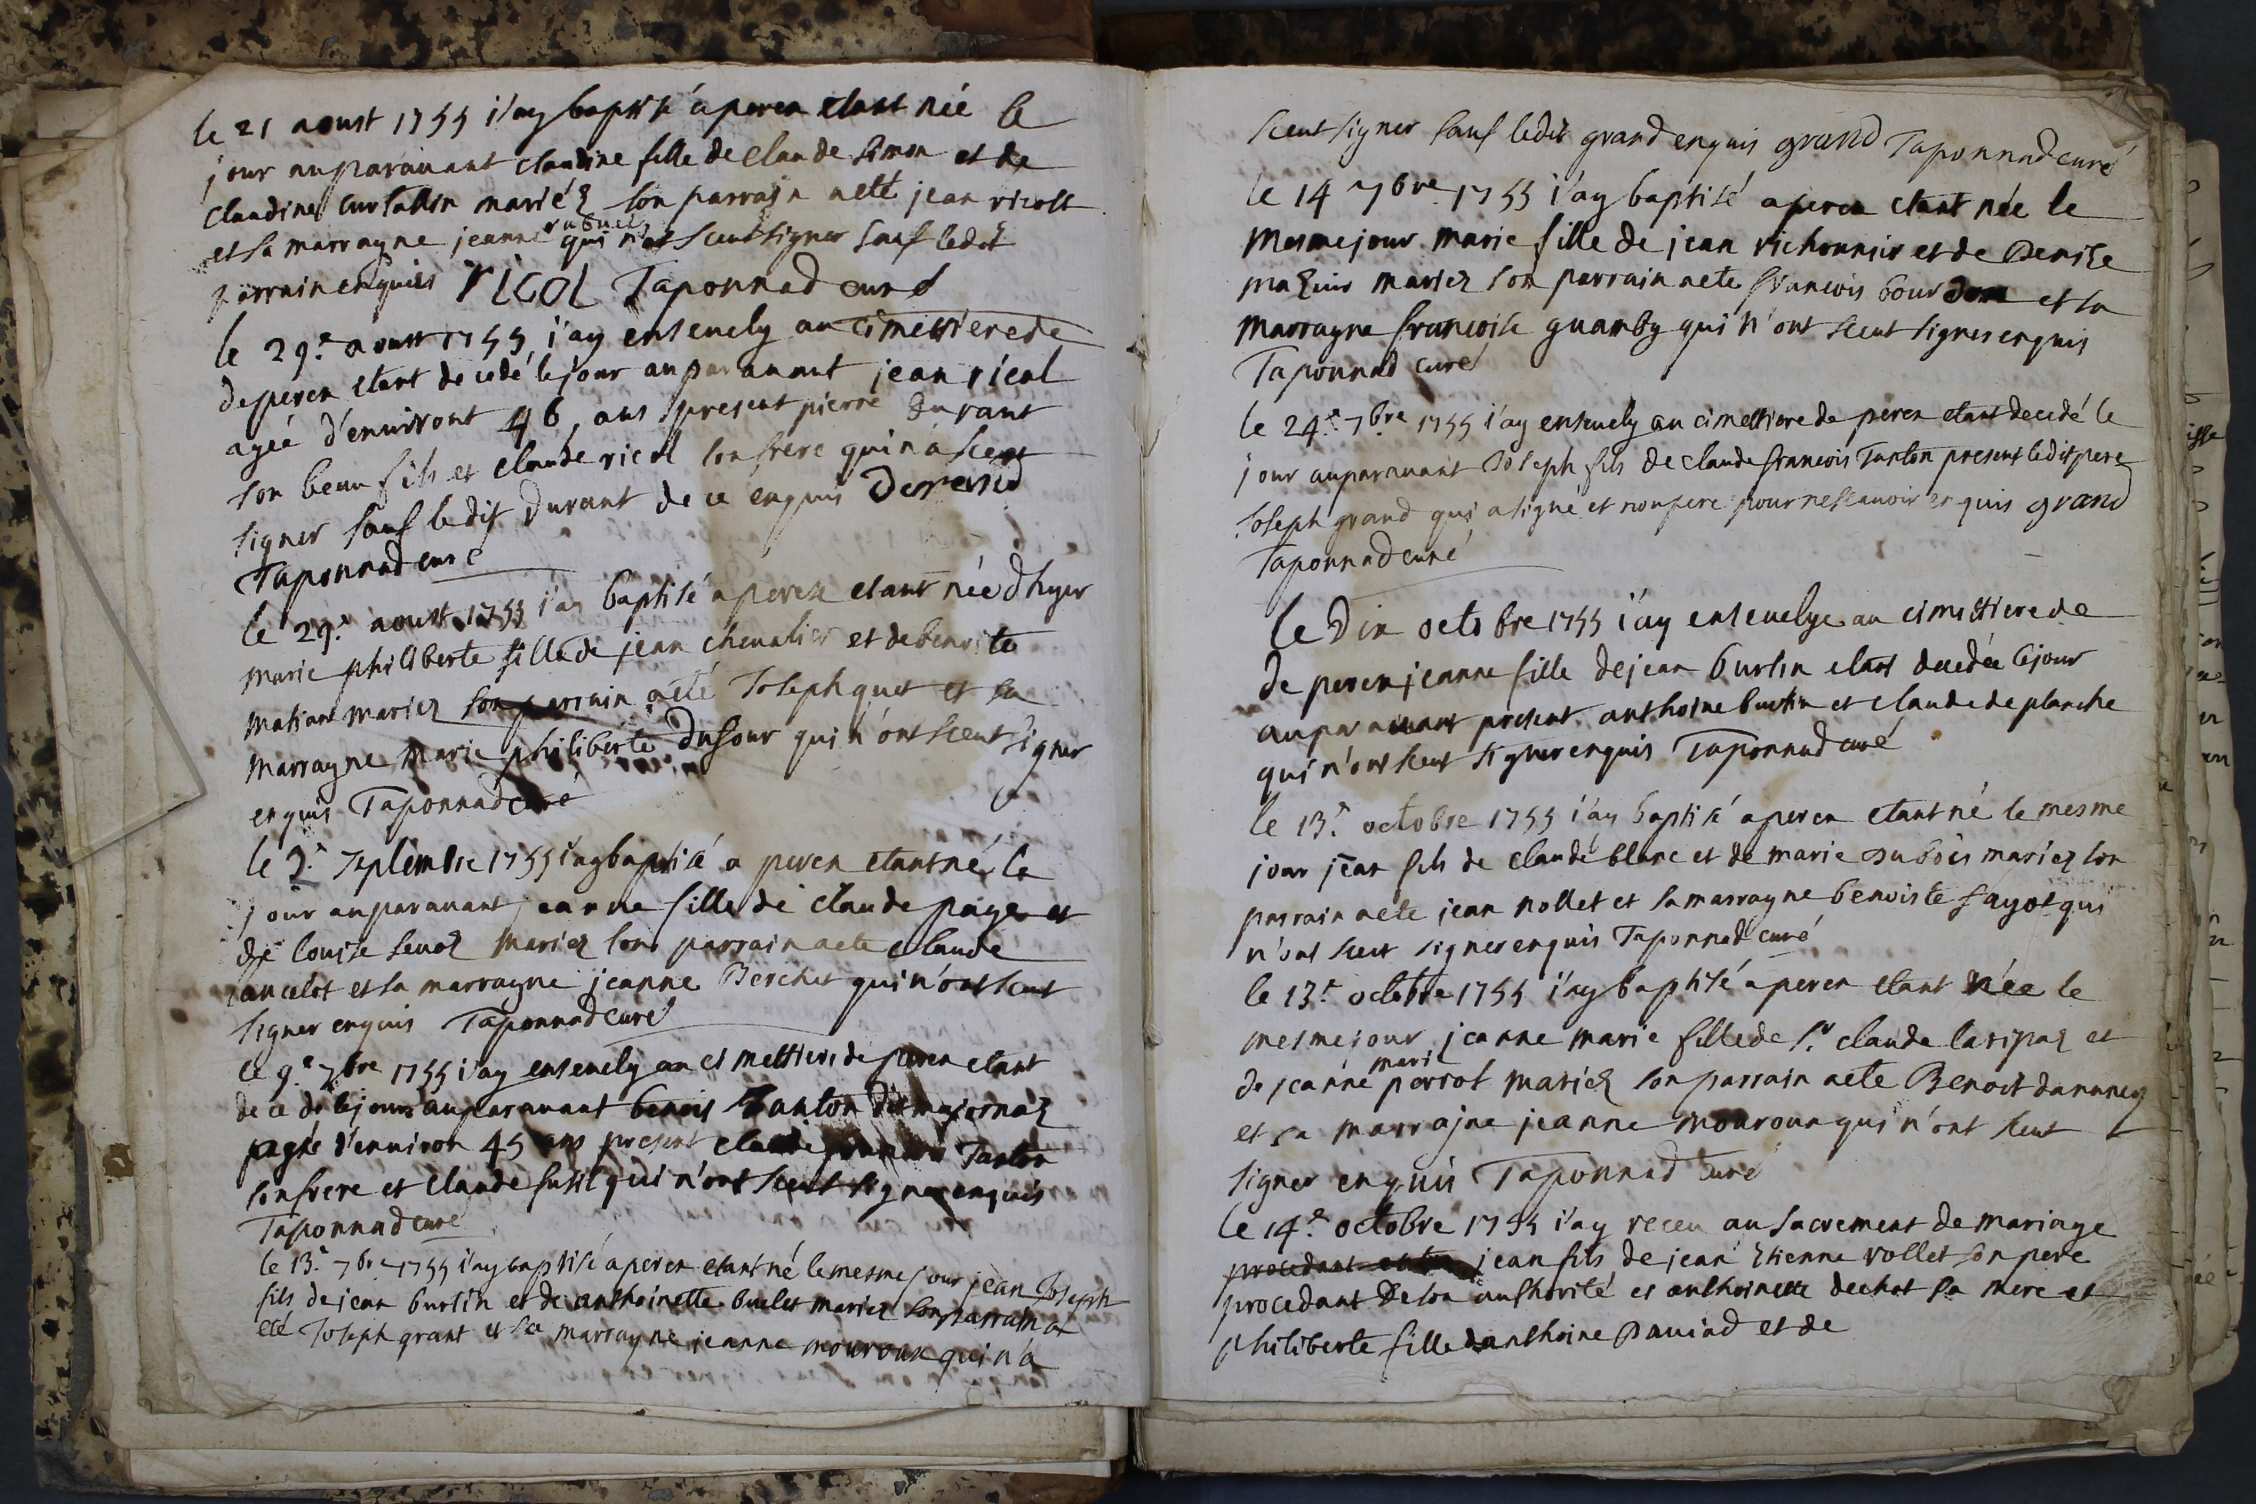 le 21 aoust 1755 j'ay baptisé a peren etant née le
jour auparauant claudine fille de claude simon et de
claudine curtallin mariéz son parrain aété jean ricoll
et sa marrayne jeanne qui n'ot sceut signer sauf ledit
parrain enquis ricol Taponnad curé
le 29.e aoust 1755 j'ay enseuely au cimettiere de
de peren etant decedé le jour auparauant jean ricol
ageé d'enuiront 46 ans present pierre durant
son beau fils et claude ricol son frere qui n'a sceut
signer sauf ledit durant de ce enquis
Taponnad curé
le 29.e aoust 1755 j'ay baptisé a peren etant née dhyer
marie philiberte fille de jean cheualier et de benoite
mariez son parrain aeté Joseph quet et sa
marrayne marie philiberte dufour qui n'ont sceut signer
enquis Taponnad curé
le 2.e septembre 1755 j'ay baptisé a peren etant né le
jour auparauant jeanne fille de claude page et
de louise mariez son parrain aete claude
lancelot et sa marrayne jeanne Berchet qui n'ont sceut
signer enquis Taponnad curé
le 9.e 7bre 1755 j'ay enseuely au cimettiere de peren etant
decedé le jour auparauant benoit Tanton dit
pagée d'enuiron 45 ans present claude francois Tanton
son frere et claude fusil qui n'ont sceut signer enquis
Taponnad curé
le 13.e 7bre 1755 j'ay baptisé a peren etant né le mesme jour jean Joseph
fils de jean burtin et de anthoinette buclet mariez son parrain a
eté Joseph grant et sa marrayne jeanne mouroux qui n'a
sceut signer sauf ledit grand enquis grand Taponnad curé
le 14 7bre 1755 j'ay baptisé a peren etant née le
mesme jour marie fille de jean richonnier et de Denise
mazuir mariez son parrain aete francois bourdon et sa
marrayne francoise guamby qui n'ont sceut signer enquis
Taponnad curé
le 24.e 7bre 1755 j'ay enseuely au cimettiere de peren etant decedé le
jour auparauant Joseph fils de claude francois Tanton present ledit pere
Joseph grand qui a signé et non pere pour ne scauoir enquis grand
Taponnad curé
le dix octobre 1755 j'ay enseuelye au cimettiere de
de peren jeanne fille de jean burtin etant decedée le jour
auparauant present anthoine burtin et claude de planche
qui n'ont sceut signer enquis Taponnad curé
le 13.e octobre 1755 j'ay baptisé a peren etant né le mesme
jour jean fils de claude blanc et de marie dubois mariez son
parrain aete jean nollet et sa marrayne benoiste fayot qui
n'ont sceut signer enquis Taponnad curé
le 13.e octobre 1755 j'ay baptisé a peren etant née le
mesme jour jeanne marie fille de s.r claude laripaz et
mari
de jeanne perrot mariez son parrain aete Benoit dananez
et sa marrajne jeanne mouroux qui n'ont sceut
signer enquis Taponnad curé
le 14.e octobre 1755 j'ay receu au sacrement de mariage
procedant jean fils de jean Etienne vollet son pere
procedant de son authorité et anthoinette dechat sa mere et
philiberte fille danthoine Dauiad et de